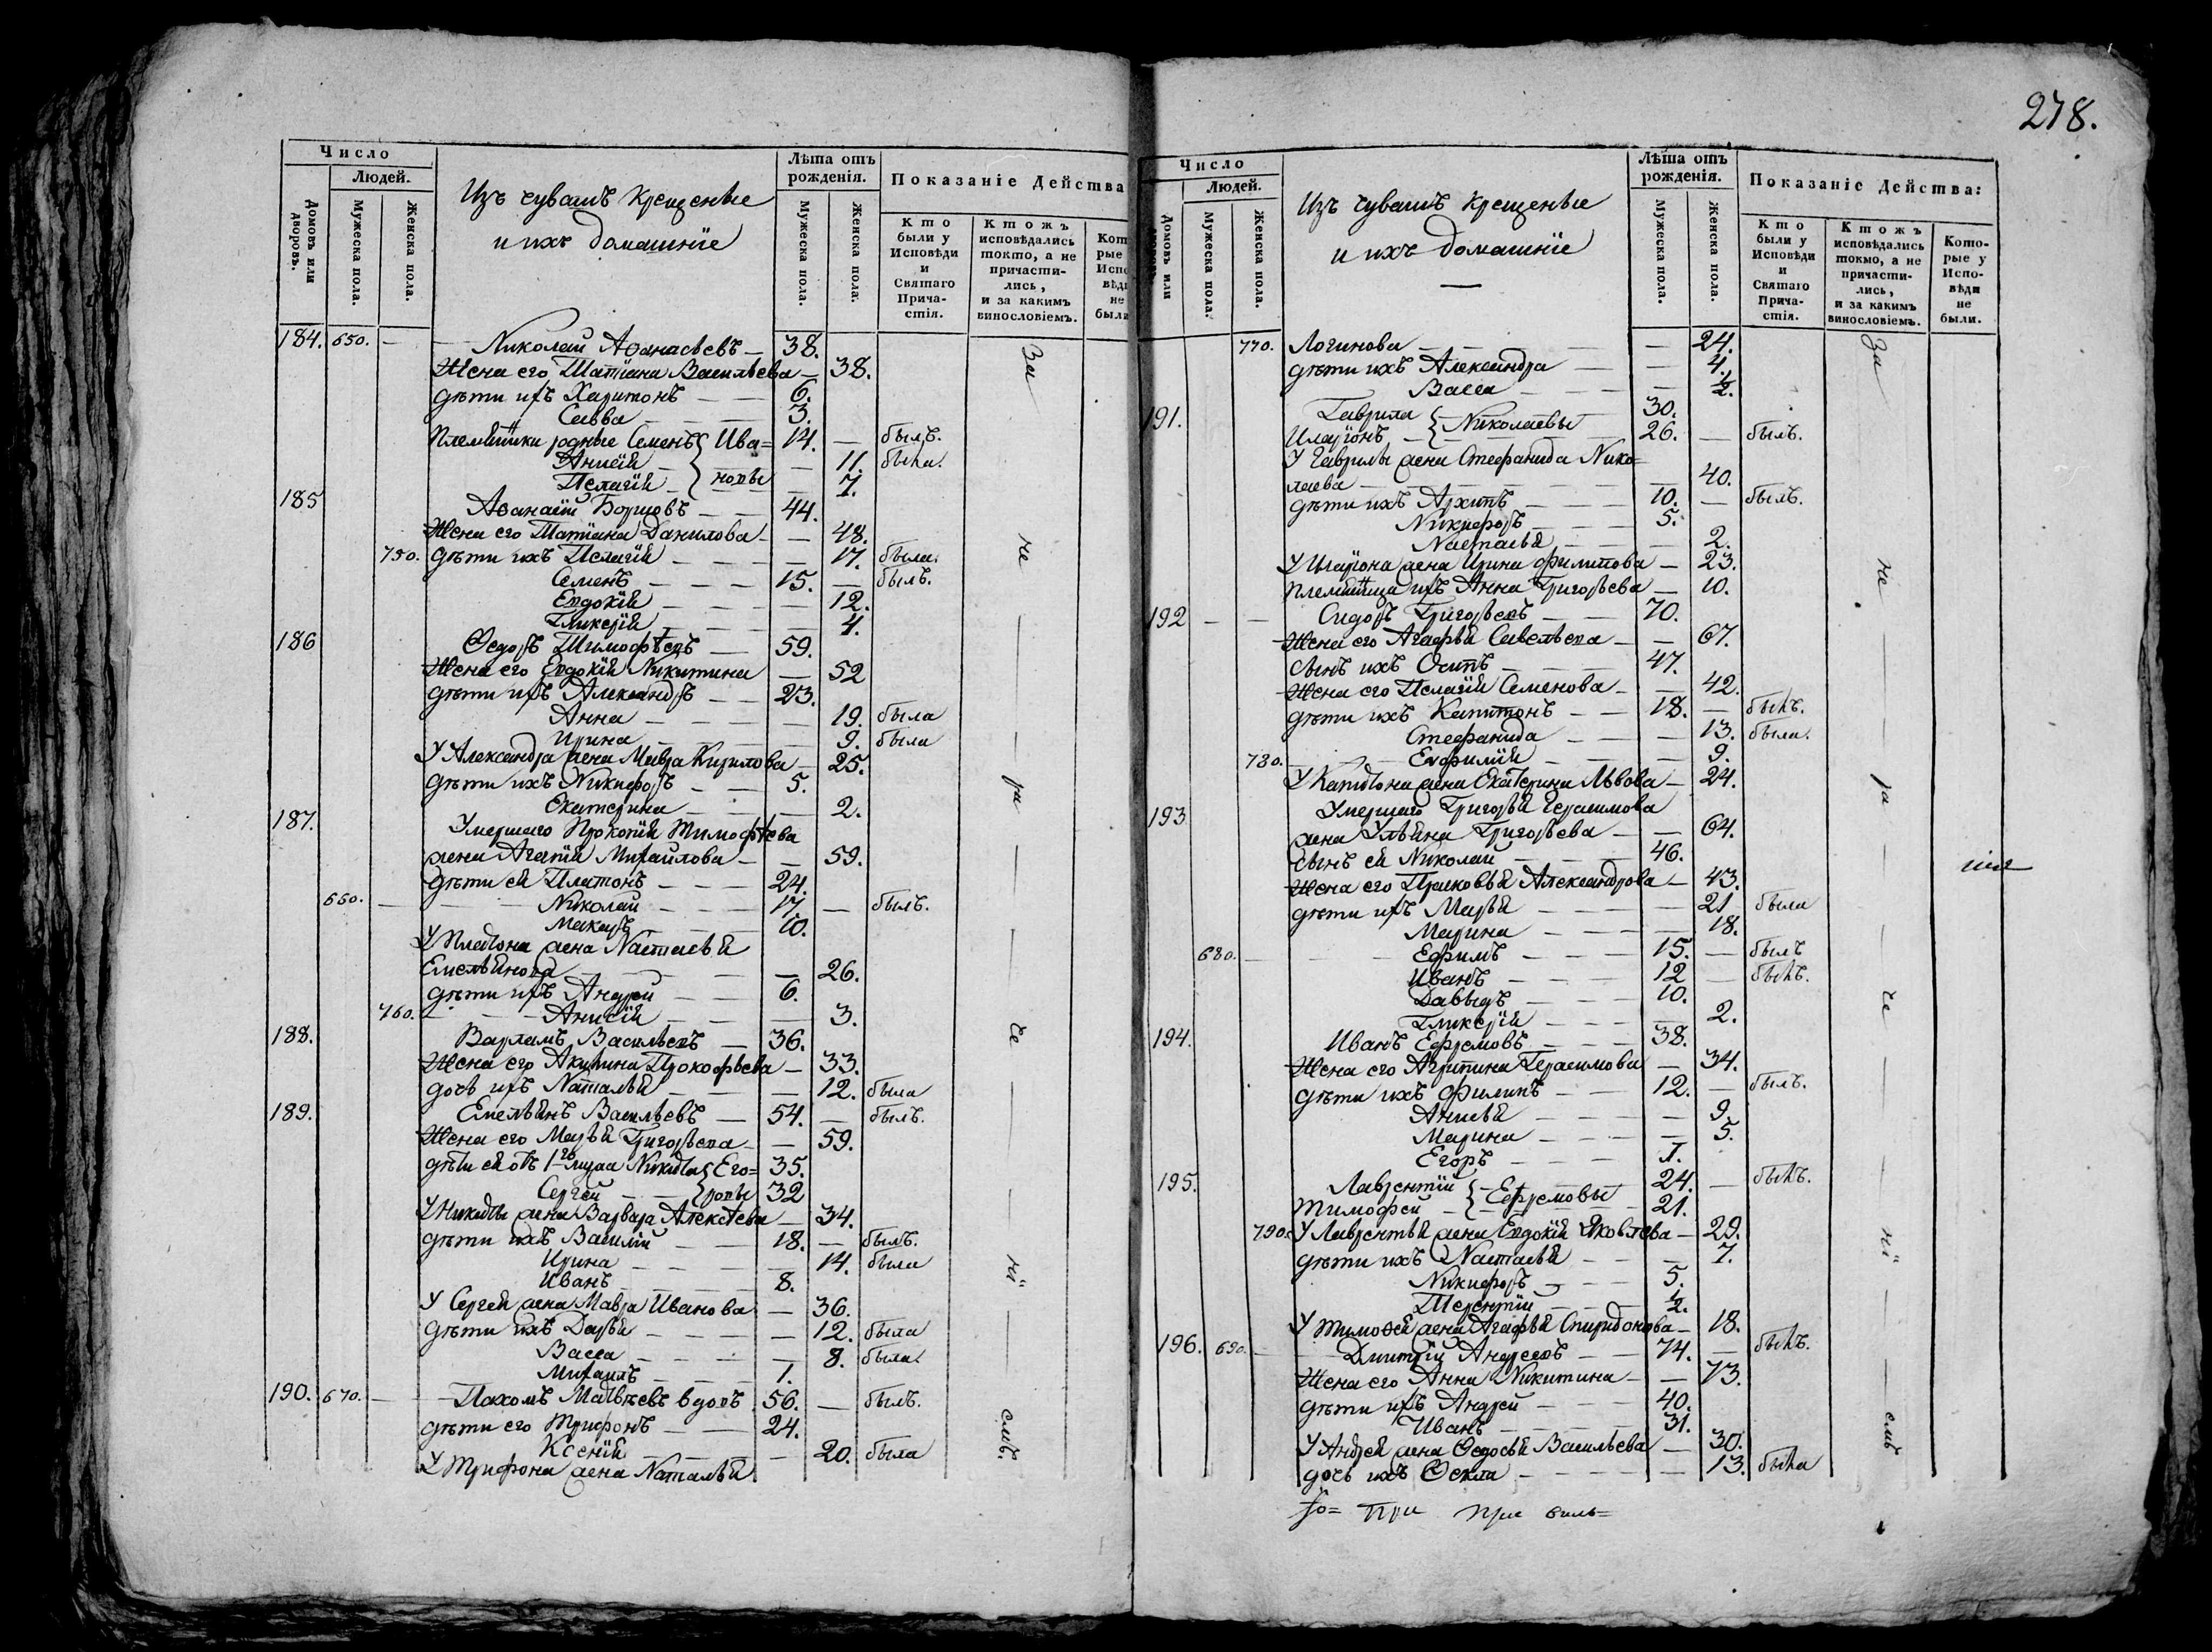 Число
Людей.
Домовъ или дворовъ.
Мужеска пола.
Женска пола.
Изъ чувашъ крещеные
и ихъ домашніе
Лѣта отъ рожденія.
Мужеска пола.
Женска пола.
Показаніе Действа
Кто были у Исповѣди и Святаго Причастія.
Ктожъ исповѣдались токмо, а не причастились, и за какимъ винословіемъ.
184. 650. — Николай Аѳанасьевъ — 38.
Жена его Татіана Васильева — 38.
дѣти ихъ Харитонъ — — 6.
Савва — — — 3.
Племянники родные Семенъ { Ива= 14. — былъ.
Анисія — { новы — 11. была.
Пелагія — — 7.
185 Аѳанасій Борисовъ — — 44.
Жена его Татіана Данилова — — 48.
750. дѣти ихъ Пелагія — — — — 17. была.
Семенъ — — — 15. — былъ.
Евдокія — — — — 12.
Гликерія — — — — 4.
186 Ѳедоръ Тимофѣевъ — 59.
Жена его Евдокія Никитина — 52
дѣти ихъ Александръ — — 23.
Анна — — — — 19. была
Ирина — — — — 9. была
У Александра жена Мавра Кирилова — 25.
дѣти ихъ Никифоръ — — 5.
Екатерина — — — 2.
187. Умершаго Прокопія Тимофѣева
жена Агапія Михайлова — — 59.
дѣти ея Платонъ — — — 24.
660. — Николай — — — 17. — былъ.
Макаръ — — — 10.
У Платона жена Настасья
Емельянова — — — — 26.
дѣти ихъ Андрей — — 6.
760. — — Анисія — — — — 3.
188. Варламъ Васильевъ — 36.
Жена его Акилина Прокофьева — 33.
дочь ихъ Наталья — — — 12. была
189. Емельянъ Васильевъ — 54. — былъ.
Жена его Марья Григорьева — — 59.
дѣти ея отъ 1го мужа Никита { Его= 35.
Сергей — — { ровы 32
У Никиты жена Варвара Алексѣева — 34.
дѣти ихъ Василій — — 18. — былъ.
Ирина — — — — 14. была
Иванъ — — — 8.
У Сергея жена Мавра Иванова — 36.
дѣти ихъ Дарья — — — — 12. была
Васса — — — — 8. была
Михаилъ — — — 1.
190. 670. — Пахомъ Матвѣевъ вдовъ 56. — былъ.
дѣти его Трифонъ — — 24.
Ксенія — — — — 20. была
У Трифона жена Наталья
За — не — ра — че — ні — емъ.
278.
Число
Людей.
Домовъ или
Мужеска пола.
Женска пола.
Изъ чувашъ крещеные
и ихъ домашніе
Лѣта отъ рожденія.
Мужеска пола.
Женска пола.
Показаніе Действа:
Кто были у Исповѣди и Святаго Причастія.
Ктожъ исповѣдались токмо, а не причастились, и за какимъ винословіемъ.
Которые у Исповѣди не были.
770. Логинова — — — — 24.
дѣти ихъ Александра — — 4.
Васса — — — — 1/2.
191. Гаврила { Николаевы 30.
Иларіонъ — { — — 26. — былъ.
У Гаврилы жена Стефанида Нико=
лаева — — — — — 40.
дѣти ихъ Архипъ — — — 10. — былъ.
Никифоръ — — — 5.
Настасья — — — — 2.
У Иларіона жена Ирина Филипова — 23.
племянница ихъ Анна Григорьева — 10.
192 — — Сидоръ Григорьевъ — 70.
Жена его Агафья Савельева — — 67.
сынъ ихъ Осипъ — — — 47.
Жена его Пелагія Семенова — — 42.
дѣти ихъ Капитонъ — — 18. — былъ.
Стефанида — — — 13. была.
780. — — Евфимія — — — — 9.
У Капитона жена Екатерина Львова — 24.
193 Умершаго Григорья Герасимова
жена Ульяна Григорьева — — 64.
сынъ ея Николай — — — 46.
Жена его Прасковья Александрова — 43.
дѣти ихъ Марья — — — — 21 была
Марина — — — — 18.
680. — — Ефимъ — — — 15. — былъ
Иванъ — — — 12 — былъ.
Давыдъ — — — 10.
Гликерія — — — — 2.
194. Иванъ Ефремовъ — — 38.
Жена его Агрипина Герасимова — 34.
дѣти ихъ Филипъ — — 12. — былъ.
Анисья — — — — 9.
Марина — — — — 5.
Егоръ — — — 1.
195. Лаврентій { Ефремовы 24. — былъ.
Тимофей — { — — 21.
790. У Лаврентья жена Евдокія Яковлева — 29.
дѣти ихъ Настасья — — — 7.
Никифоръ — — — 5.
Терентій — — — 1/2.
У Тимоѳея жена Агафья Спиридонова — 18.
196. 690. — Дмитрій Андреевъ — — 74. — былъ.
Жена его Анна Никитина — — 73.
дѣти ихъ Андрей — — — 40.
Иванъ — — — — 31.
У Андрея жена Ѳедосья Васильева — 30.
дочь ихъ Ѳекла — — — — — 13. была
За — не — ра — че — ні — емъ